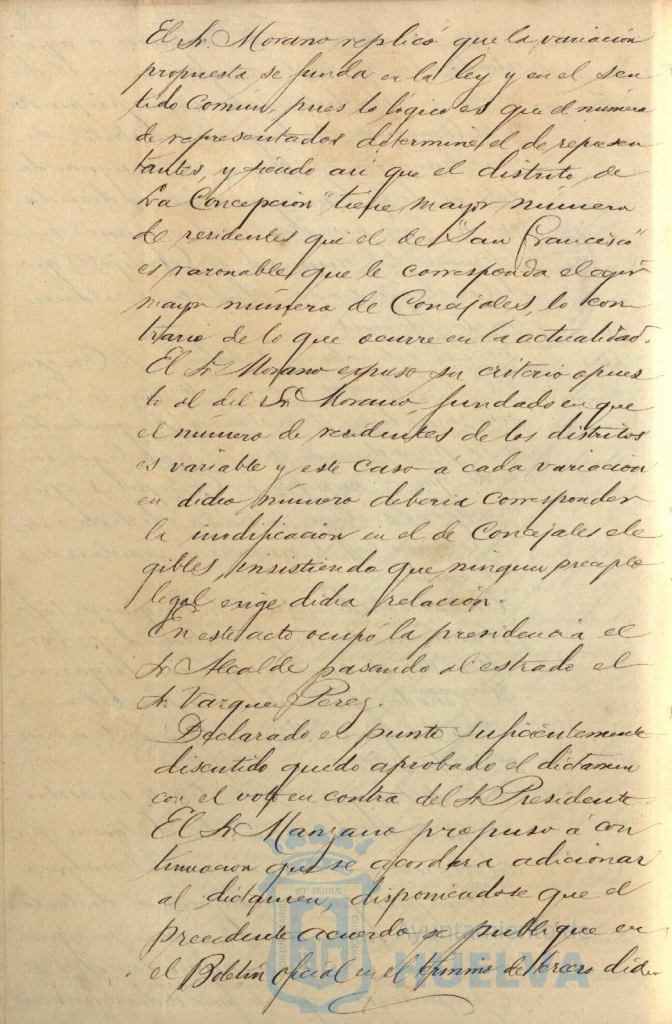 El Sr. Morano replicó que la variación
propuesta se funda en la ley y en el sen
tido común, pues lo lógico es que el número
de representados determine el de represen
tantes, y siendo asi que el distrito de
"La Concepción" tiene mayor número
de residentes que el de "San Francisco"
es razonable que le corresponda elegir
mayor número de Concejales, lo con
trario de lo que ocurre en la actualidad.
El Sr. Morano expuso su criterio opues
to al del Sr. Morano, fundado en que
el numero de residentes de los distritos
es variable y este caso á cada variacion
en dicho número deberia corresponder
la modificacion en el de Concejales ele
gibles, insistiendo que ningun precepto
legal exige dicha relación.
En este acto ocupó la presidencia el
Sr. Alcalde pasando al estrado el
Sr. Vazquez Perez.
Declarado el punto suficientemente
discutido quedó aprobado el dictamen
con el voto en contra del Sr. Presidente.
El Sr. Manzano propuso á con
tinuacion que se acordara adicionar
al dictamen, disponiendose que el
precedente acuerdo se publique en
el Boletin oficial en el termino de tercero dia
Ayuntamiento de
HUELVA